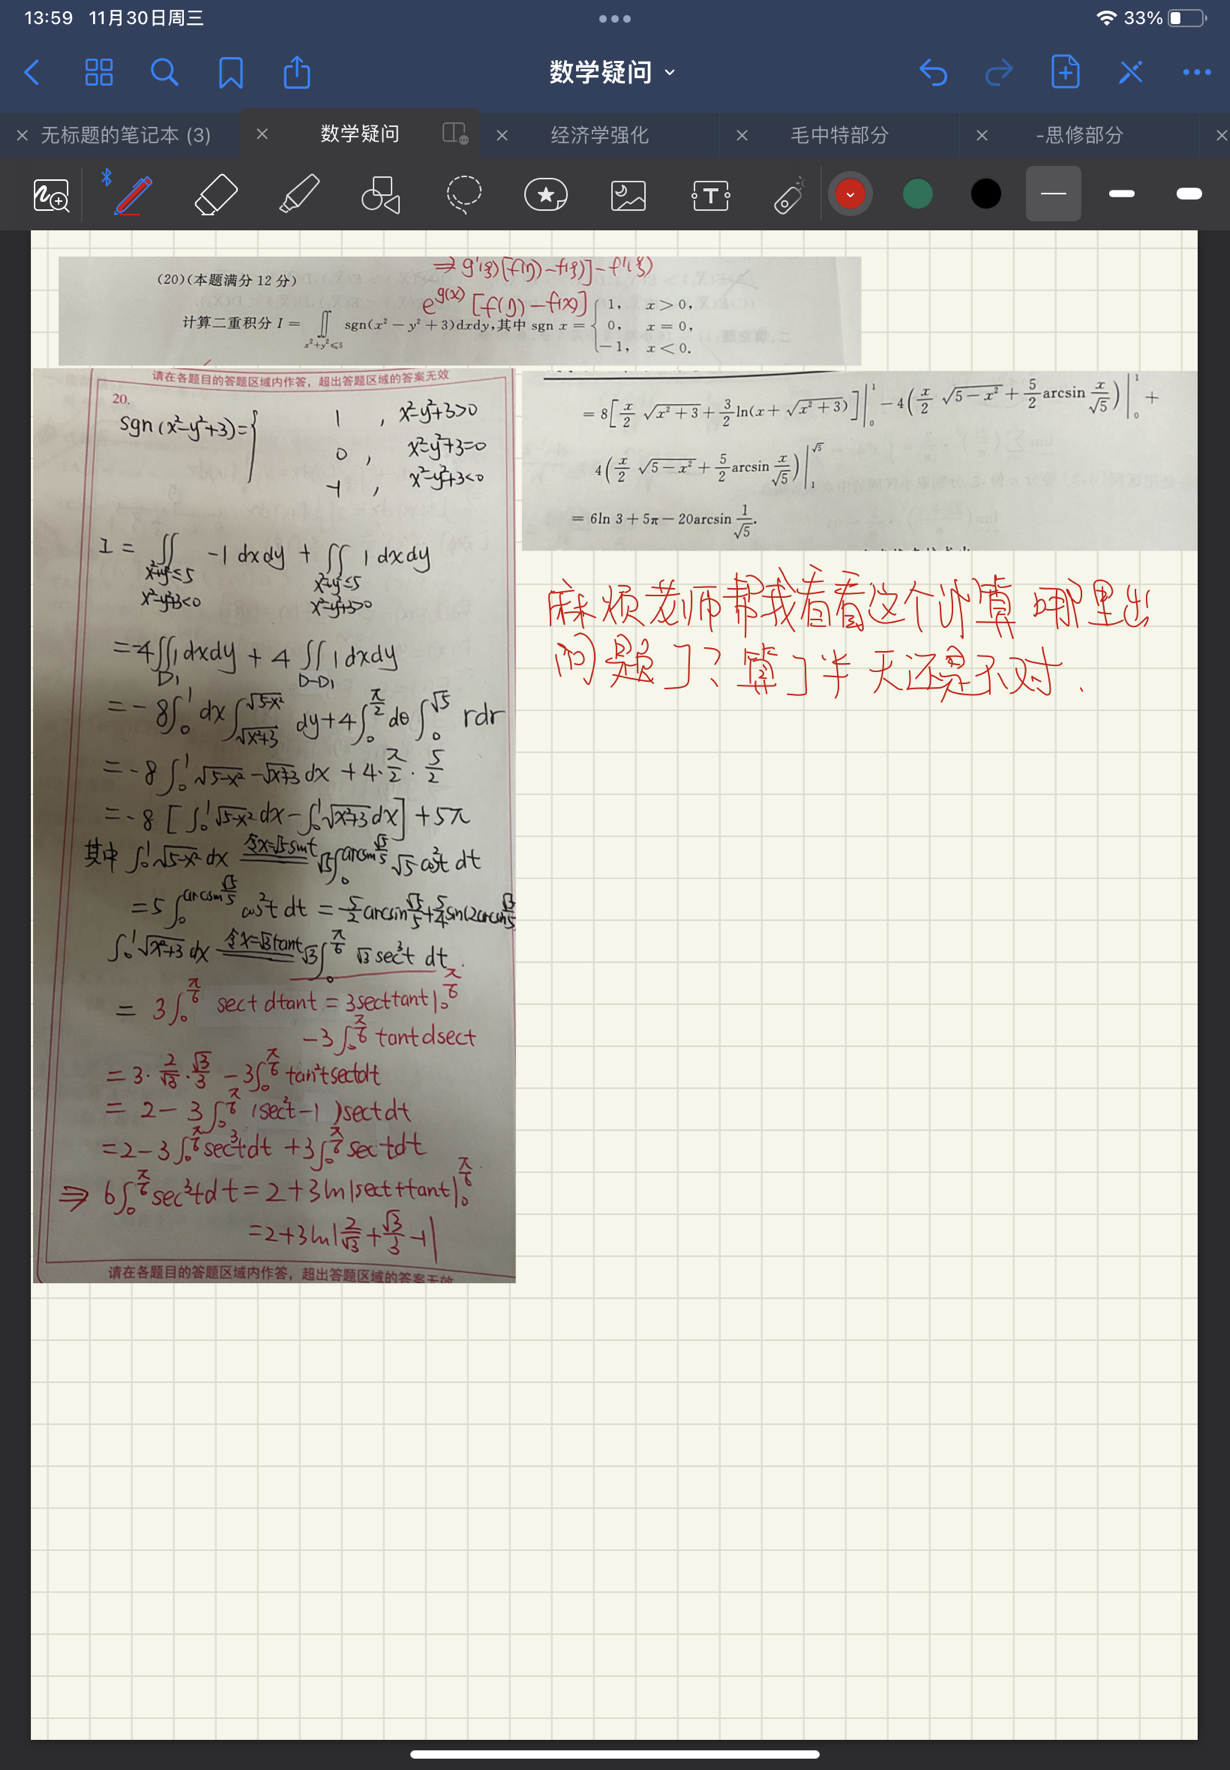 13:59 11月30日周三
33%
数学疑问
无标题的笔记本 (3)
数学疑问
经济学强化
毛中特部分
-思修部分
⇒ g'(ξ)[f(η)-f(ξ)]-f'(ξ)
(20)(本题满分 12 分)
e^{g(x)} [f(η)-f(x)]
计算二重积分 I = ∬_{x²+y²≤5} sgn(x² − y² + 3)dxdy,其中 sgn x = { 1, x > 0,
0, x = 0,
−1, x < 0.
请在各题目的答题区域内作答，超出答题区域的答案无效
20.
sgn(x²-y²+3)= { 1 , x²-y²+3>0
0 , x²-y²+3=0
-1 , x²-y²+3<0
I = ∬_{x²+y²≤5, x²-y²+3<0} -1 dxdy + ∬_{x²+y²≤5, x²-y²+3>0} 1 dxdy
=-4∬_{D1} 1dxdy + 4 ∬_{D-D1} 1dxdy
=-8∫_0^1 dx ∫_{√(x²+3)}^{√(5-x²)} dy+4∫_0^{π/2} dθ ∫_0^{√5} rdr
=-8 ∫_0^1 √(5-x²) -√(x²+3) dx +4·π/2·5/2
=-8 [∫_0^1 √(5-x²) dx-∫_0^1 √(x²+3) dx] +5π
其中 ∫_0^1 √(5-x²) dx 令x=√5sint √5∫_0^{arcsin √5/5} √5 cos²t dt
=5∫_0^{arcsin √5/5} cos²t dt = 5/2 arcsin √5/5 + 5/4 sin(2arcsin √5/5
∫_0^1 √(x²+3) dx 令x=√3tant √3∫_0^{π/6} √3 sec³t dt
= 3∫_0^{π/6} sect dtant = 3secttant|_0^{π/6}
-3∫_0^{π/6} tantdsect
=3·2/√3·√3/3 -3∫_0^{π/6} tan²tsectdt
= 2- 3∫_0^{π/6} (sec²t-1)sectdt
=2-3∫_0^{π/6} sec³tdt +3∫_0^{π/6} sectdt
⇒ 6∫_0^{π/6} sec³tdt=2+3ln|sect+tant||_0^{π/6}
=2+3ln|2/√3+√3/3-1|
请在各题目的答题区域内作答，超出答题区域的答案无效
= 8[x/2 √(x²+3) + 3/2 ln(x + √(x²+3))]|_0^1 − 4(x/2 √(5−x²) + 5/2 arcsin x/√5)|_0^1 +
4(x/2 √(5−x²) + 5/2 arcsin x/√5)|_1^{√5}
= 6ln 3 + 5π − 20arcsin 1/√5.
麻烦老师帮我看看这个计算哪里出
问题了？算了半天还是不对.